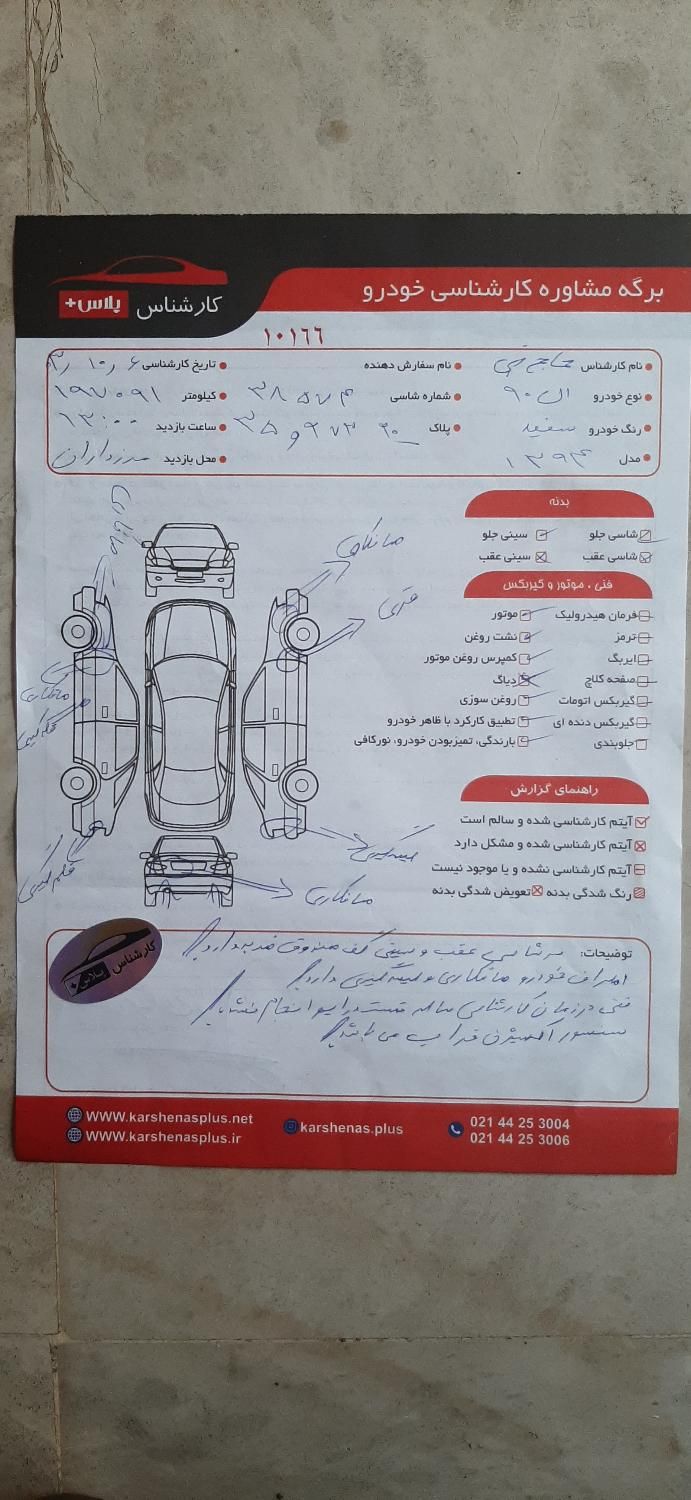 برگه مشاوره کارشناسی خودرو
کارشناس پلاس+
۱۰۱۶۶
نام کارشناس
نام سفارش دهنده
تاریخ کارشناسی ۳/۱۰/۶
نوع خودرو ال ۹۰
شماره شاسی ۳۸۵۷۴
کیلومتر ۱۹۷۰۹۱
رنگ خودرو سفید
پلاک
ساعت بازدید ۱۳:۰۰
مدل ۱۳۹۴
محل بازدید مرزداران
بدنه
شاسی جلو
سینی جلو
شاسی عقب
سینی عقب
فنی ، موتور و گیربکس
فرمان هیدرولیک
موتور
ترمز
نشت روغن
ایربگ
کمپرس روغن موتور
صفحه کلاچ
دیاگ
گیربکس اتومات
روغن سوزی
گیربکس دنده ای
تطبیق کارکرد با ظاهر خودرو
جلوبندی
بارندگی، تمیزبودن خودرو، نورکافی
راهنمای گزارش
آیتم کارشناسی شده و سالم است
آیتم کارشناسی شده و مشکل دارد
آیتم کارشناسی نشده و یا موجود نیست
رنگ شدگی بدنه
تعویض شدگی بدنه
صافکاری
صافکاری
صافکاری
لیسه گیری
صافکاری
توضیحات: سرشاسی عقب و سینی کف صندوق ضربه دارد
اطراف خودرو صافکاری و لیسه گیری دارد
فنی در زمان کارشناسی سالم تست درایو انجام نشد
سنسور اکسیژن خراب می باشد
کارشناس پلاس+
WWW.karshenasplus.net
WWW.karshenasplus.ir
karshenas.plus
021 44 25 3004
021 44 25 3006